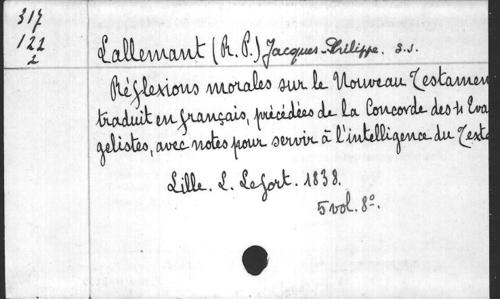 317
122
2
Lallemant (R. P.) Jacques-Philippe. S.J.
Réflexions morales sur le Nouveau Testamen
traduit en français, précédées de la Concorde des 4 Eva
gelistes, avec notes pour servir à l'intelligence du Texte
Lille. L. Lefort. 1838.
5 vol. 8º.